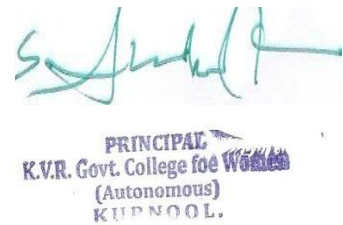 PRINCIPAL
K.V.R. Govt. College foe Women
(Autonomous)
KURNOOL.